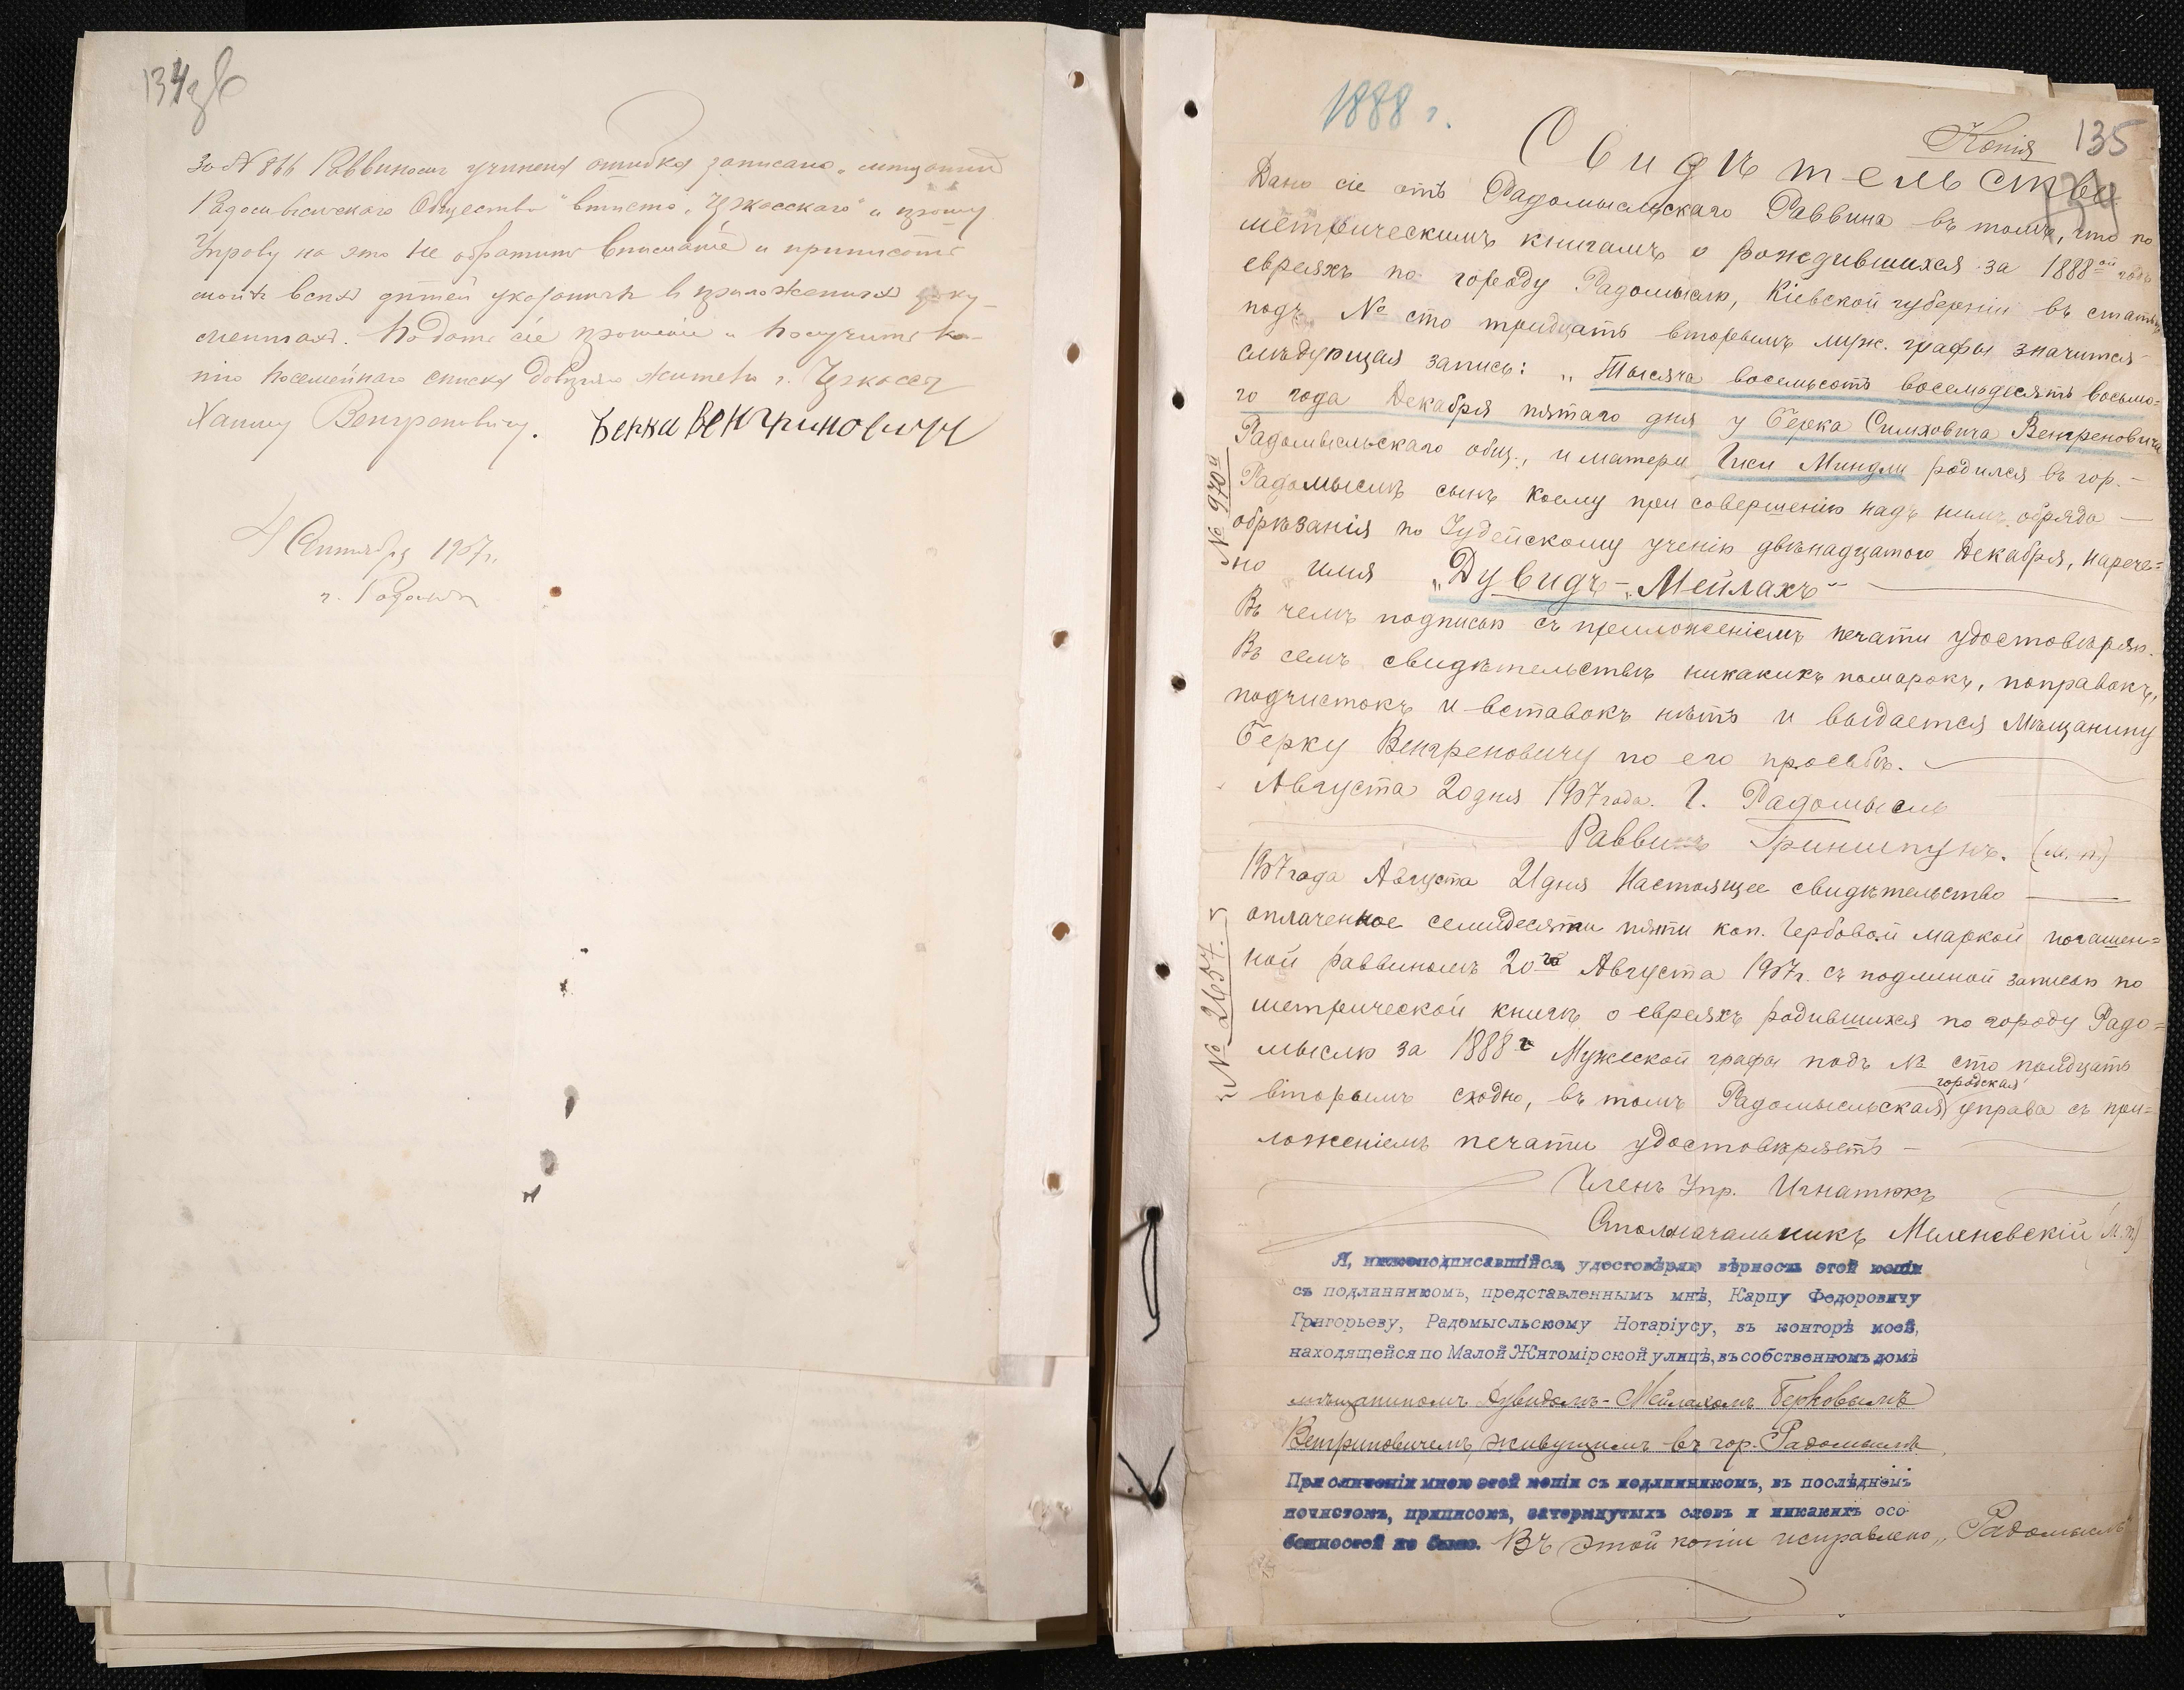 134об
За № 866 Раввиномъ учинена ошибка записано „мещанинъ
Радомысльскаго Общества" вместо „Чжосскаго" и прошу
Управу на это не обратить вниманіе и приписать
моихъ всехъ детей указанныхъ въ приложенныхъ доку-
ментахъ. Подать сіе прошеніе и получить ко-
пію посемейнаго списка доверяю жителю г.
Хаиму Венгреновичу. Берко Венгриновичъ
4 Сентября 1907 г.
г. Радом
1888 г.
Копія 135
Свидѣтельство
Дано сіе отъ Радомысльскаго Раввина въ томъ, что по
метрическимъ книгамъ о рождившихся за 1888ой годъ
евреяхъ по городу Радомыслю, Кіевской губерніи въ статьѣ
подъ № сто тридцать вторымъ муж. графы значится
слѣдующая запись: „Тысяча восемьсотъ восемьдесятъ восьмо=
го года Декабря пятаго дня у Берка Симховича Венгреновича
Радомысльскаго общ., и матери Гиси Миндли родился въ гор.-
Радомыслѣ сынъ коему при совершеніи надъ нимъ обряда —
обрѣзанія по Іудейскому ученію двѣнадцатого Декабря, нарече=
но имя „Дувидъ-„Мейлахъ"
Въ чемъ подписью съ приложеніемъ печати удостовѣряю.
Въ семъ свидѣтельствѣ никакихъ помарокъ, поправокъ,
подчистокъ и вставокъ нѣтъ и выдается Мѣщанину
Берку Венгреновичу по его просьбѣ.
№ 970
Августа 20 дня 1907 года. Г. Радомысль
Раввинъ Гриншпунъ. (м. п.)
1907 года Августа 21 дня Настоящее свидѣтельство
оплаченное семидесяти пяти коп. Гербовой маркой погашен=
ной раввиномъ 20го Августа 1907 г. съ подлиной записью по
метрической книгѣ о евреяхъ родившихся по городу Радо=
мыслю за 1888 г Мужской графы подъ № сто тридцать
вторымъ сходно, въ томъ Радомысльская городская управа съ при=
ложеніемъ печати удостовѣряетъ —
№ 2657.
Членъ Упр. Игнатюкъ
Столоначальникъ Миленевскій (м.п.)
Я, нижеподписавшійся, удостовѣряю вѣрность этой копіи
съ подлинникомъ, представленнымъ мнѣ, Карпу Федоровичу
Григорьеву, Радомысльскому Нотаріусу, въ конторѣ моей,
находящейся по Малой Житомірской улицѣ, въ собственномъ домѣ
мѣщаниномъ Дувидомъ-Мейлахомъ Берковымъ
Венгриновичемъ, живущимъ въ гор. Радомыслѣ,
При сличеніи мною этой копіи съ подлинникомъ, въ послѣднемъ
почистокъ, приписокъ, зачеркнутыхъ словъ и никакихъ осо-
бенностей не было. Въ этой копіи исправлено „Радомыслъ"